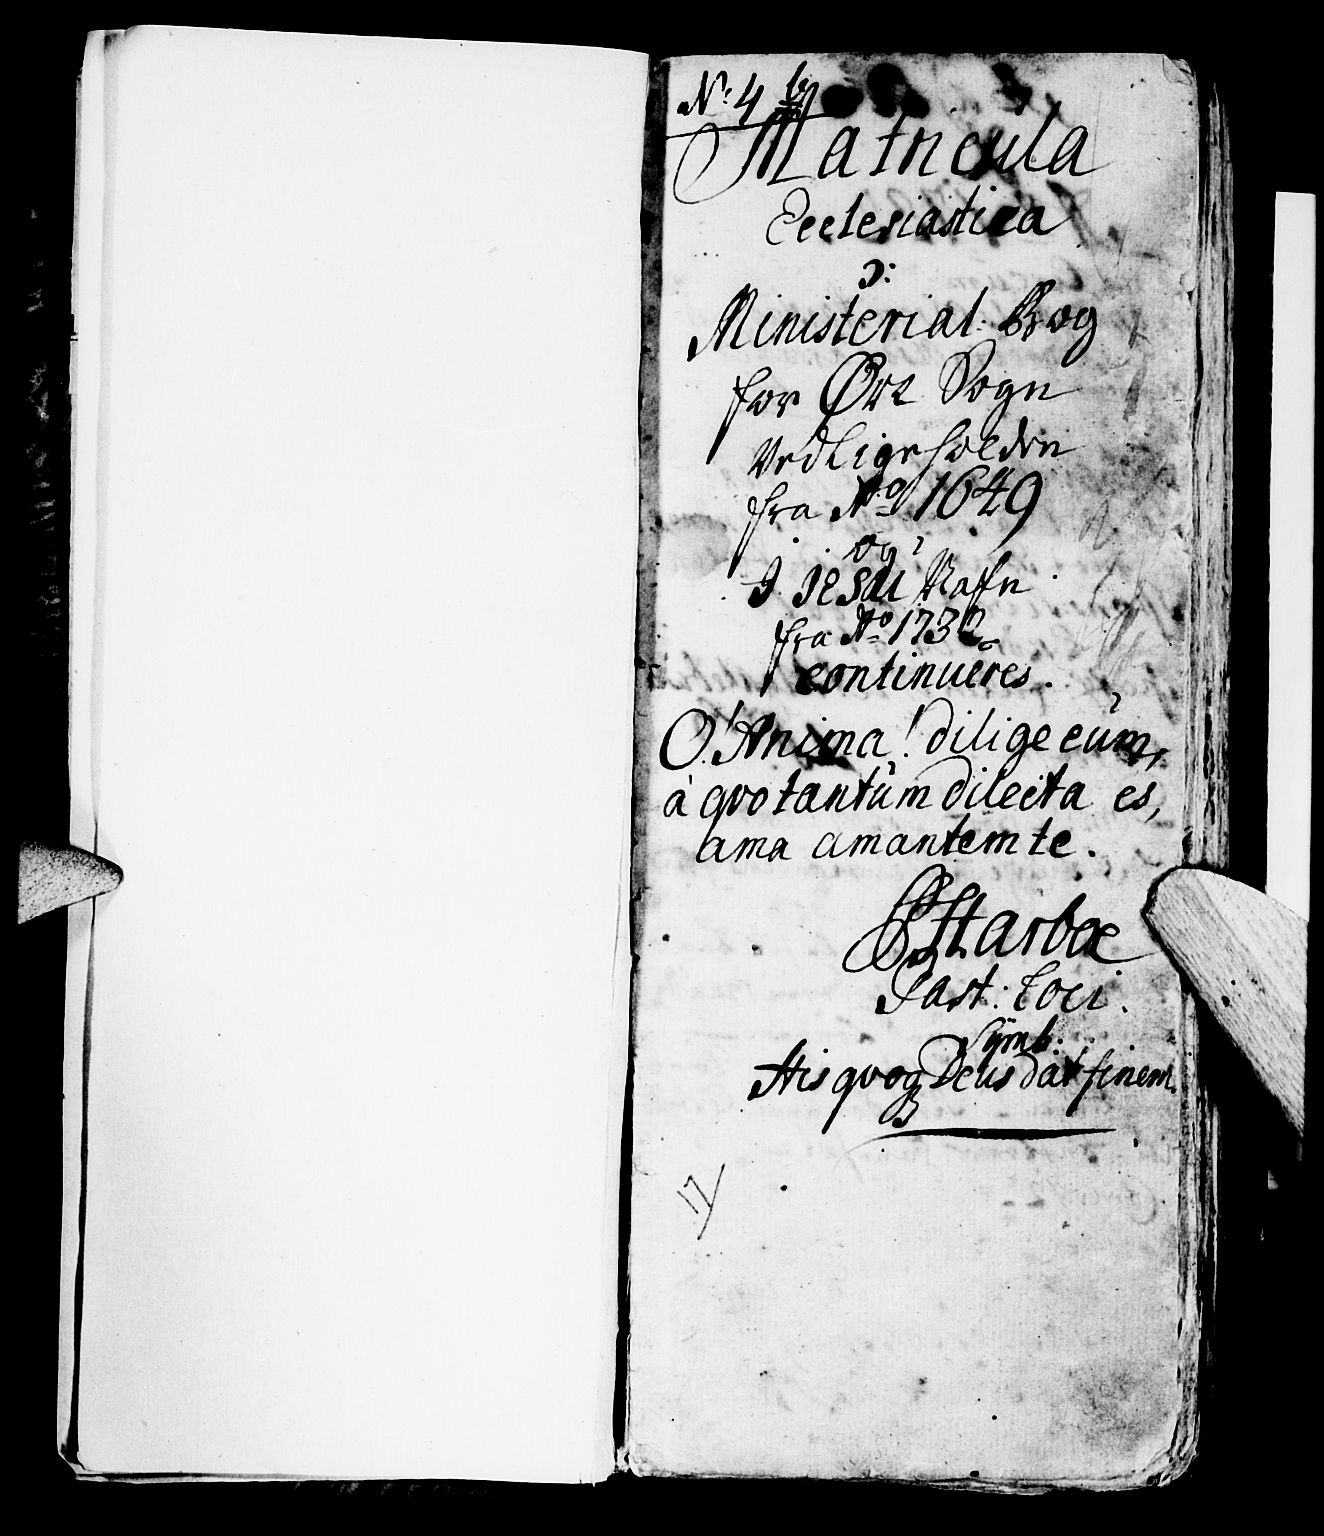 No: 4 b
Matricula
Ecclesiastica
ɔ:
Ministerial: Bog
for Ørt Sogn
Vedligeholden
fra Ao 1649
og
I Jesu Nafn
fra Ao 1732
continueres.
O! Anima! dilige eum,
à qvo tantum dilecta es,
ama amantem te.
Harboe
Past: Loci.
Symb:
His qvoq Deus dat finem.
17